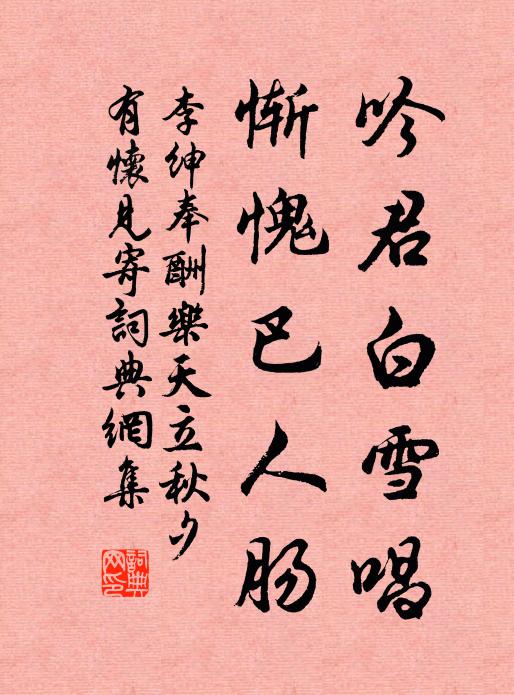 吟君白雪唱
惭愧巴人肠
李绅奉酬樂天立秋夕
有懷見寄詞典網集
詞典网印